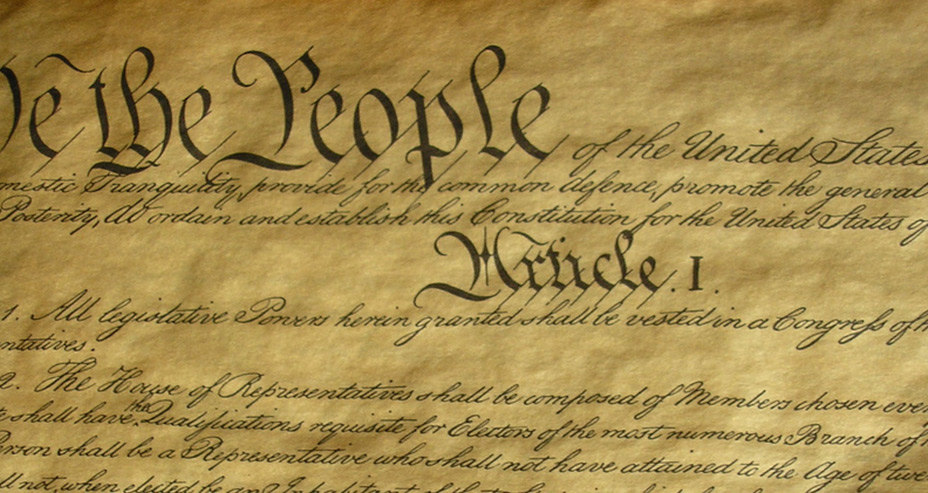 We the People of the United States
omestic Tranquility, provide for the common defence, promote the general
Posterity, do ordain and establish this Constitution for the United States of
Article. I.
1. All legislative Powers herein granted shall be vested in a Congress of
ntatives.
2. The House of Representatives shall be composed of Members chosen ever
shall have the Qualifications requisite for Electors of the most numerous Branch of
Person shall be a Representative who shall not have attained to the Age of twe
ll not, when elected, be an Inhabitant of